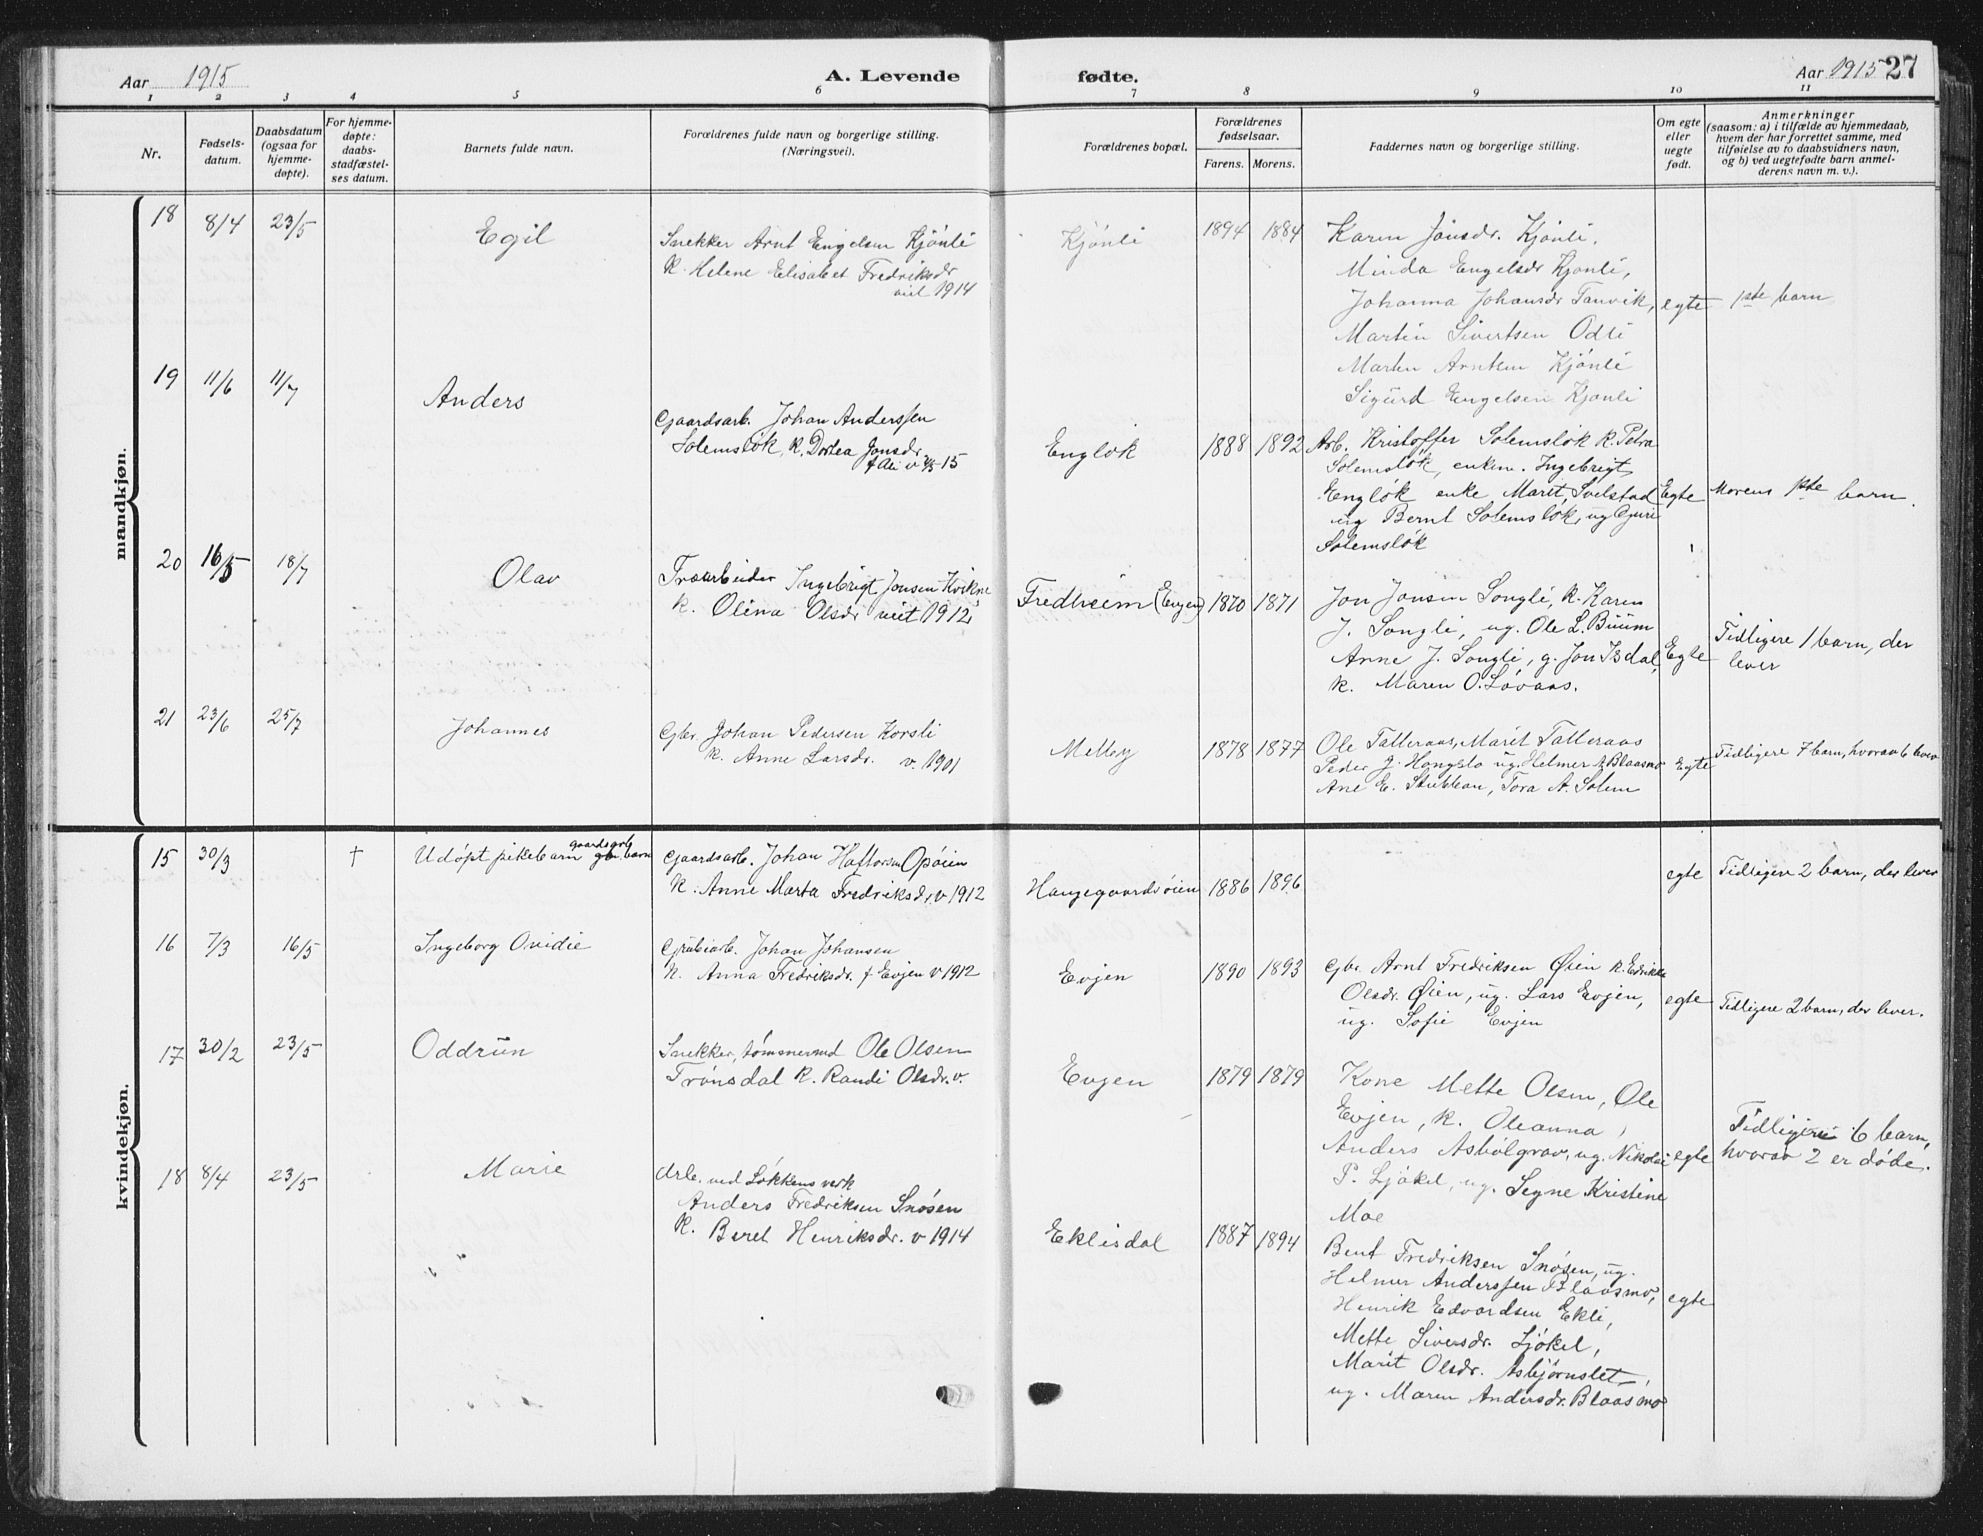 Aar 1915 A. Levende fødte. Aar 1915 27
1 2 3 4 5 6 7 8 9 10 11
Nr.
Fødsels-
datum.
Daabsdatum
(ogsaa for
hjemme-
døpte).
For hjemme-
døpte:
daabs-
stadfæstel-
ses datum.
Barnets fulde navn.
Forældrenes fulde navn og borgerlige stilling.
(Næringsvei).
Forældrenes bopæl.
Forældrenes
fødselsaar.
Farens. Morens.
Faddernes navn og borgerlige stilling.
Om egte
eller
uegte
født.
Anmerkninger
(saasom: a) i tilfælde av hjemmedaab,
hvem der har forrettet samme, med
tilføielse av to daabsvidners navn,
og b) ved uegtefødte barn anmel-
derens navn m. v.).
mandkjøn.
18 8/4 23/5 Egil
Snekker Arnt Engelsen Kjönli
K. Helene Elisabet Fredriksdr
viet 1914
Kjönli 1894 1884
Karen Jönsdr. Kjönli,
Minda Engelsdr Kjonli,
Johanna Johansdr Tanvik,
Martin Sivertsen Odli
Marten Arntsen Kjönli
Sigurd Engelsen Kjonli
egte 1ste barn
19 11/6 11/7 Anders
Gaardsarb. Johan Anderssen
Solemslök, K. Dortea Jonsdr.
15
Englok 1888 1892
Arb. Kristoffer Solemslök K. Petra
Solemslök, enkem. Ingebrigt
Englök enke Marit Svelstad
ug Bernt Solemslök, ug Guri
Solemslök
Egte Morens 1ste barn.
20 16/5 18/7 Olav
Træarbeider Ingebrigt Jonsen Kvikne
K. Olina Olsdr viet 1912
Fredheim (Evjen) 1870 1871
Jon Jonsen Songli, K. Karen
J. Songli, ug. Ole L. Buum
Anne J. Songli, g. Jon Isdal,
K. Maren O. Lövaas.
Egte
Tidligere 1 barn, der
lever
21 23/6 25/7 Johannes
Gbr. Johan Pedersen Korsli
K. Anne Larsdr. v. 1901
Melby 1878 1877
Ole Tatteraas, Marit Tatteraas
Peder J. Hongslo ug. Helmer A. Blaasmo
Ane E. Stubban, Tora A. Solem
Egte Tidligere 7 barn, hvorav 6 lever
kvindekjøn.
15 30/3 † Udöpt pikebarn gaardsarb barn
Gaardsarb. Johan Haftorsen Opöien
K. Anne Marta Fredriksdr. v 1912
Haugegaardsöien 1886 1896
egte Tidligere 2 barn, der lever
16 7/3 16/5 Ingeborg Ovidie
Grubearb. Johan Johansen
K. Anna Fredriksdr. f Evjen v 1912
Evjen 1890 1893
Gbr. Arnt Fredriksen Øien K. Edrikka
Olsdr. Øien, ug. Lars Evjen,
ug. Sofie Evjen
egte Tidligere 2 barn, der lever.
17 30/2 23/5 Oddrun
Snekker, tömmermd Ole Olsen
Trönsdal K. Randi Olsdr. v.
Evjen 1879 1879
Kone Mette Olsen, Ole
Evjen, K. Oleanna,
Anders Asbölgrav, ug. Nikolai
P. Ljökel, ug. Segne Kristine
Moe
egte
Tidligere 6 barn,
hvorav 2 er döde.
18 8/4 23/5 Marie
Arb. ved Lökkens verk
Anders Fredriksen Snösen
K. Beret Henriksdr. v 1914
Eklisdal 1887 1894
Bent Fredriksen Snösen, ug.
Helmer Anderssen Blaasmo,
Henrik Edvardsen Ekli,
Mette Siversdr. Ljökel,
Marit Olsdr. Asbjörnslet,
ug. Maren Andersdr. Blaasmo
egte